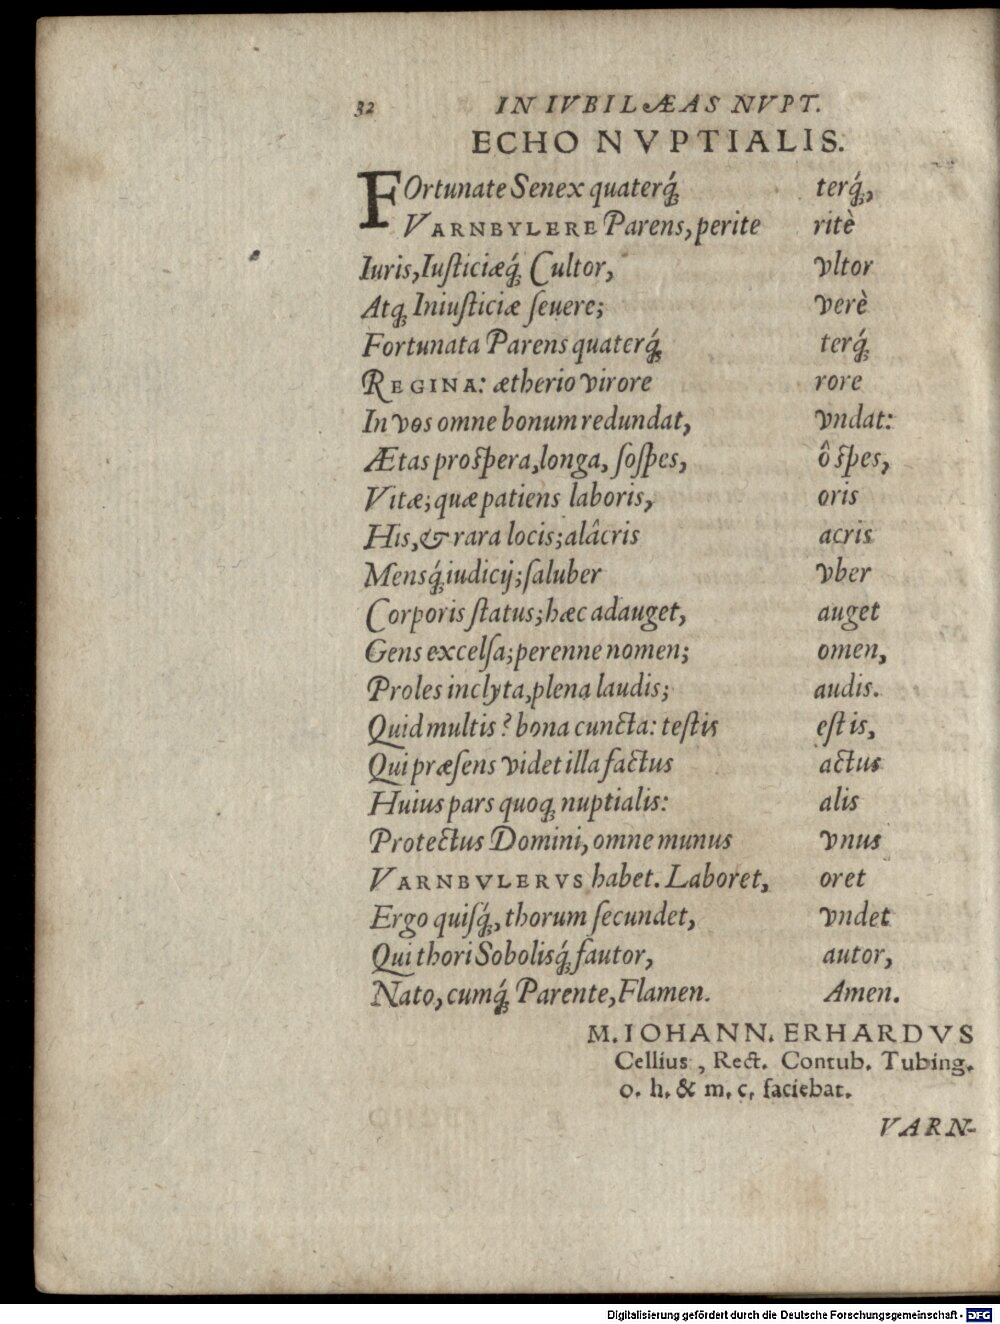 32 IN IVBILÆAS NVPT.
ECHO NVPTIALIS.
FOrtunate Senex quaterq́; terq́;,
VARNBYLERE Parens, perite ritè
Iuris, Iuſticiæq́; Cultor, vltor
Atq; Iniuſticiæ ſeuere; verè
Fortunata Parens quaterq́; terq́;
REGINA: ætherio virore rore
In vos omne bonum redundat, vndat:
Ætas proſpera, longa, ſoſpes, ô ſpes,
Vitæ; quæ patiens laboris, oris
His, & rara locis; alâcris acris
Mensq́; iudicij; ſaluber vber
Corporis ſtatus; hæc adauget, auget
Gens excelſa; perenne nomen; omen,
Proles inclyta, plena laudis; audis.
Quid multis? bona cuncta: teſtis eſtis,
Qui præſens videt illa factus actus
Huius pars quoq; nuptialis: alis
Protectus Domini, omne munus vnus
VARNBVLERVS habet. Laboret, oret
Ergo quiſq́;, thorum ſecundet, vndet
Qui thori Sobolisq́; fautor, autor,
Nato, cumq́; Parente, Flamen. Amen.
M. IOHANN. ERHARDVS
Cellius, Rect. Contub. Tubing.
o. h. & m. c. faciebat.
VARN-
Digitalisierung gefördert durch die Deutsche Forschungsgemeinschaft - DFG